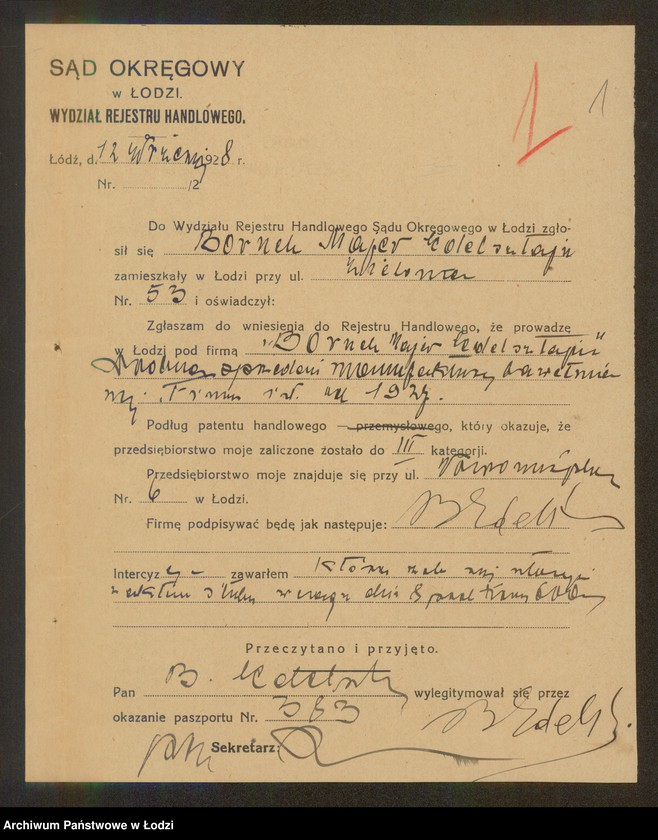 SĄD OKRĘGOWY
w ŁODZI.
WYDZIAŁ REJESTRU HANDLOWEGO.
1 1
Łódź, d. 12 Września 1928 r.
Nr. /2
Do Wydziału Rejestru Handlowego Sądu Okręgowego w Łodzi zgło-
sił się Boruch Majer Edelsztajn
zamieszkały w Łodzi przy ul. Zielona
Nr. 53 i oświadczył:
Zgłaszam do wniesienia do Rejestru Handlowego, że prowadzę
w Łodzi pod firmą "Boruch Majer Edelsztajn"
sprzedaż manufaktury bawełnia
nej. Firma istn. od 1927.
Podług patentu handlowego – przemysłowego, który okazuje, że
przedsiębiorstwo moje zaliczone zostało do III kategorji.
Przedsiębiorstwo moje znajduje się przy ul. Nowomiejska
Nr. 6 w Łodzi.
Firmę podpisywać będę jak następuje: B Edelsz
Intercyzę zawarłem którą
dni 8 pod
Przeczytano i przyjęto.
Pan B. Edelszt wylegitymował się przez
okazanie paszportu Nr. 363 B Edelsz
Sekretarz:
Archiwum Państwowe w Łodzi